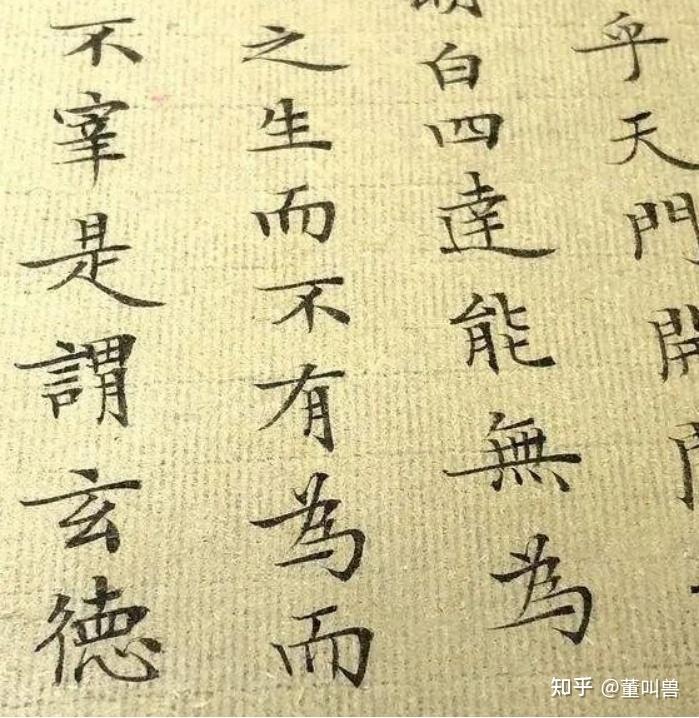 乎天門開
明白四達能無為
之生而不有為而
不宰是謂玄德
知乎 @董叫兽